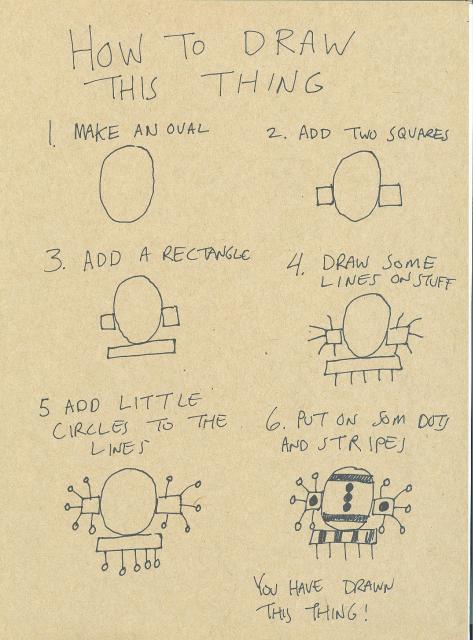 HOW TO DRAW
THIS THING
1. MAKE AN OVAL
2. ADD TWO SQUARES
3. ADD A RECTANGLE
4. DRAW SOME
LINES ON STUFF
5 ADD LITTLE
CIRCLES TO THE
LINES
6. PUT ON SOM DOTS
AND STRIPES
YOU HAVE DRAWN
THIS THING!